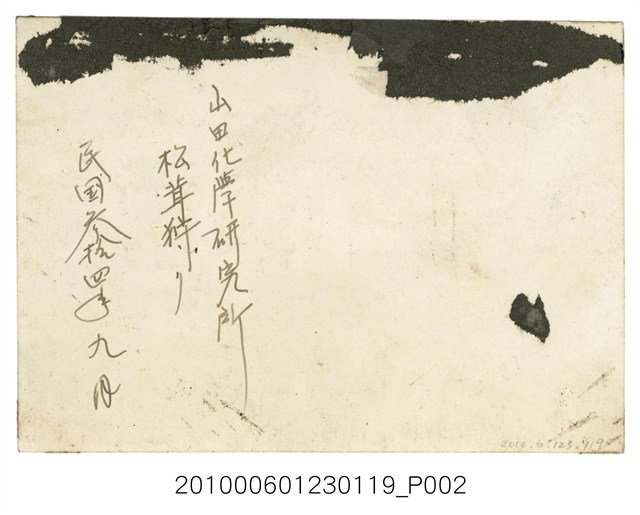 山田化學研究所
松茸狩り
民國叁拾四年九月
2010.6.123.119
201000601230119_P002